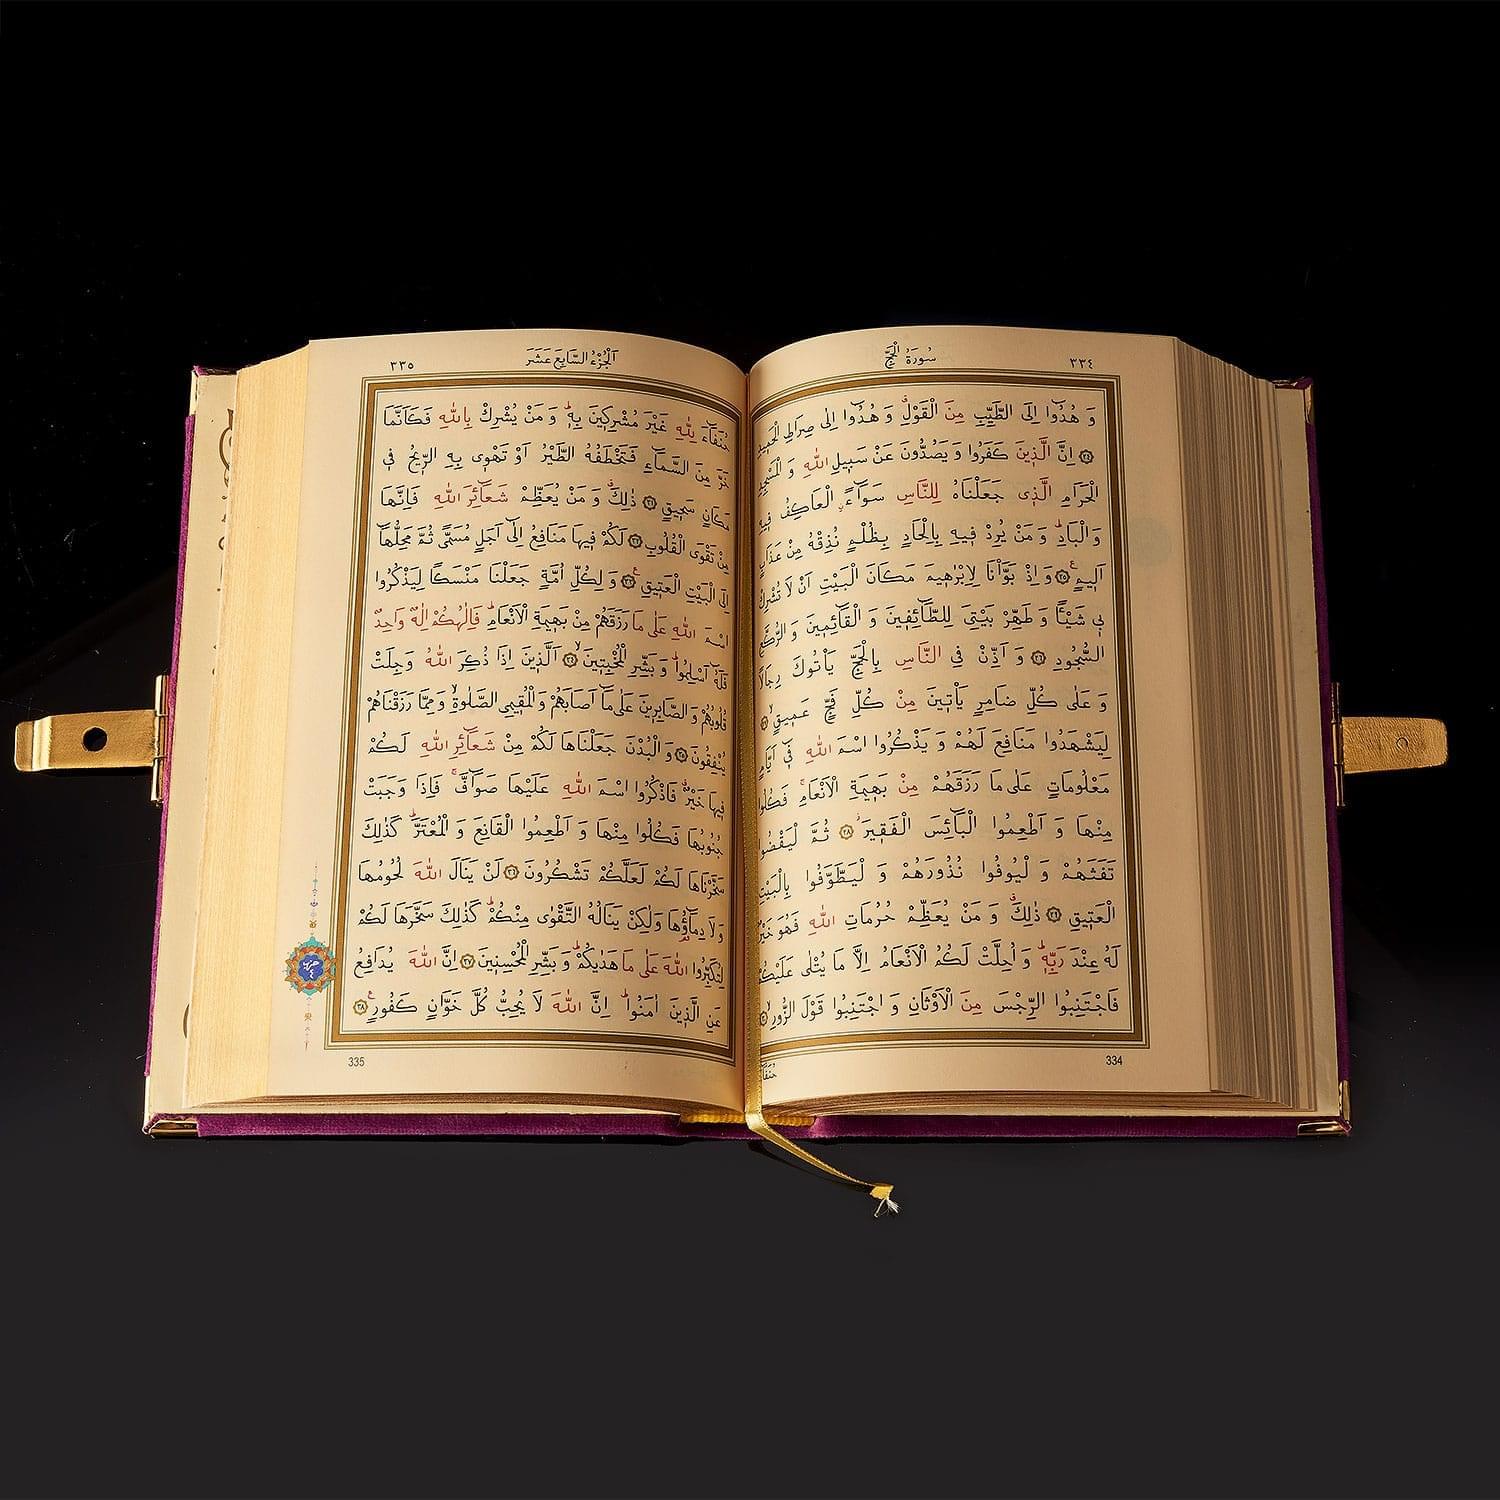 ٣٣٤
سُورَةُ الْحَجِّ
وَ هُدُٓوا اِلَى الطَّيِّبِ مِنَ الْقَوْلِۚ وَ هُدُٓوا اِلٰى صِرَاطِ الْحَم۪يدِ
﴿٢٤﴾ اِنَّ الَّذ۪ينَ كَفَرُوا وَ يَصُدُّونَ عَنْ سَب۪يلِ اللّٰهِ وَ الْمَسْجِدِ
الْحَرَامِ الَّذ۪ى جَعَلْنَاهُ لِلنَّاسِ سَوَٓاءًۨ الْعَاكِفُ ف۪يهِ
وَ الْبَادِۜ وَ مَنْ يُرِدْ ف۪يهِ بِاِلْحَادٍ بِظُلْمٍ نُذِقْهُ مِنْ عَذَابٍ
اَل۪يمٍ ﴿٢٥﴾ وَ اِذْ بَوَّاْنَا لِاِبْرٰه۪يمَ مَكَانَ الْبَيْتِ اَنْ لَا تُشْرِكْ
ب۪ى شَيْـًٔا وَ طَهِّرْ بَيْتِىَ لِلطَّٓائِف۪ينَ وَ الْقَٓائِم۪ينَ وَ الرُّكَّعِ
السُّجُودِ ﴿٢٦﴾ وَ اَذِّنْ فِى النَّاسِ بِالْحَجِّ يَاْتُوكَ رِجَالًا
وَ عَلٰى كُلِّ ضَامِرٍ يَاْت۪ينَ مِنْ كُلِّ فَجٍّ عَم۪يقٍۙ ﴿٢٧﴾
لِيَشْهَدُوا مَنَافِعَ لَهُمْ وَ يَذْكُرُوا اسْمَ اللّٰهِ ف۪ٓى اَيَّامٍ
مَعْلُومَاتٍ عَلٰى مَا رَزَقَهُمْ مِنْ بَه۪يمَةِ الْاَنْعَامِۚ فَكُلُوا
مِنْهَا وَ اَطْعِمُوا الْبَٓائِسَ الْفَق۪يرَۘ ﴿٢٨﴾ ثُمَّ لْيَقْضُوا
تَفَثَهُمْ وَ لْيُوفُوا نُذُورَهُمْ وَ لْيَطَّوَّفُوا بِالْبَيْتِ
الْعَت۪يقِ ﴿٢٩﴾ ذٰلِكَۗ وَ مَنْ يُعَظِّمْ حُرُمَاتِ اللّٰهِ فَهُوَ خَيْرٌ
لَهُ عِنْدَ رَبِّه۪ۜ وَ اُحِلَّتْ لَكُمُ الْاَنْعَامُ اِلَّا مَا يُتْلٰى عَلَيْكُمْ
فَاجْتَنِبُوا الرِّجْسَ مِنَ الْاَوْثَانِ وَ اجْتَنِبُوا قَوْلَ الزُّورِۙ ﴿٣٠﴾
334
حُنَفَٓاءَ
٣٣٥
اَلْجُزْءُ السَّابِعَ عَشَرَ
حُنَفَٓاءَ لِلّٰهِ غَيْرَ مُشْرِك۪ينَ بِه۪ۜ وَ مَنْ يُشْرِكْ بِاللّٰهِ فَكَاَنَّمَا
خَرَّ مِنَ السَّمَٓاءِ فَتَخْطَفُهُ الطَّيْرُ اَوْ تَهْو۪ى بِهِ الرّ۪يحُ ف۪ى
مَكَانٍ سَح۪يقٍ ﴿٣١﴾ ذٰلِكَۗ وَ مَنْ يُعَظِّمْ شَعَٓائِرَ اللّٰهِ فَاِنَّهَا
مِنْ تَقْوَى الْقُلُوبِ ﴿٣٢﴾ لَكُمْ ف۪يهَا مَنَافِعُ اِلٰٓى اَجَلٍ مُسَمًّى ثُمَّ مَحِلُّهَٓا
اِلَى الْبَيْتِ الْعَت۪يقِ۟ ﴿٣٣﴾ وَ لِكُلِّ اُمَّةٍ جَعَلْنَا مَنْسَكًا لِيَذْكُرُوا
اسْمَ اللّٰهِ عَلٰى مَا رَزَقَهُمْ مِنْ بَه۪يمَةِ الْاَنْعَامِۜ فَاِلٰهُكُمْ اِلٰهٌ وَاحِدٌ
فَلَهُٓ اَسْلِمُواۜ وَ بَشِّرِ الْمُخْبِت۪ينَۙ ﴿٣٤﴾ اَلَّذ۪ينَ اِذَا ذُكِرَ اللّٰهُ وَجِلَتْ
قُلُوبُهُمْ وَ الصَّابِر۪ينَ عَلٰى مَٓا اَصَابَهُمْ وَ الْمُق۪يمِى الصَّلٰوةِۙ وَ مِمَّا رَزَقْنَاهُمْ
يُنْفِقُونَ ﴿٣٥﴾ وَ الْبُدْنَ جَعَلْنَاهَا لَكُمْ مِنْ شَعَٓائِرِ اللّٰهِ لَكُمْ
ف۪يهَا خَيْرٌۗ فَاذْكُرُوا اسْمَ اللّٰهِ عَلَيْهَا صَوَٓافَّۚ فَاِذَا وَجَبَتْ
جُنُوبُهَا فَكُلُوا مِنْهَا وَ اَطْعِمُوا الْقَانِعَ وَ الْمُعْتَرَّۜ كَذٰلِكَ
سَخَّرْنَاهَا لَكُمْ لَعَلَّكُمْ تَشْكُرُونَ ﴿٣٦﴾ لَنْ يَنَالَ اللّٰهَ لُحُومُهَا
وَ لَا دِمَٓاؤُ۬هَا وَلٰكِنْ يَنَالُهُ التَّقْوٰى مِنْكُمْۜ كَذٰلِكَ سَخَّرَهَا لَكُمْ
لِتُكَبِّرُوا اللّٰهَ عَلٰى مَا هَدٰيكُمْۜ وَ بَشِّرِ الْمُحْسِن۪ينَ ﴿٣٧﴾ اِنَّ اللّٰهَ يُدَافِعُ
عَنِ الَّذ۪ينَ اٰمَنُواۜ اِنَّ اللّٰهَ لَا يُحِبُّ كُلَّ خَوَّانٍ كَفُورٍ۟ ﴿٣٨﴾
335
حزب